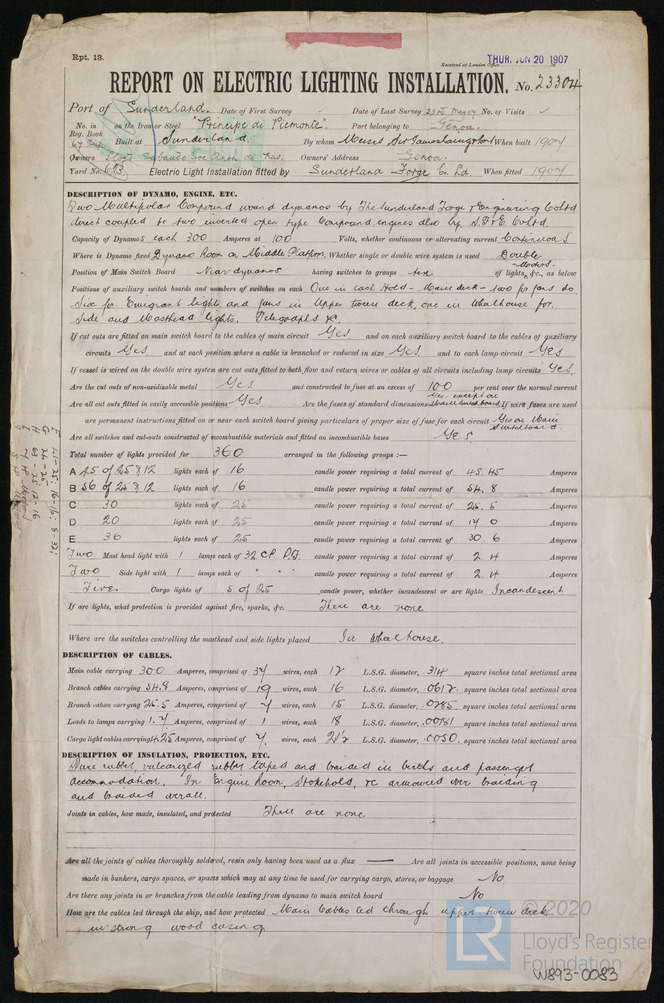 Rpt. 13.
Received at London Office THUR. JUN 20 1907
REPORT ON ELECTRIC LIGHTING INSTALLATION. No. 23304
Port of Sunderland. Date of First Survey Date of Last Survey 23rd May 07 No. of Visits
No. in Reg. Book on the Iron or Steel "Principe di Piemonte". Port belonging to Genoa.
Built at Sunderland By whom Messrs Sir James Laing & Sons Ltd When built 1907
Owners Lloyd Sabaudo Soc Anon di Nav. Owners' Address Genoa.
Yard No. 623 Electric Light Installation fitted by Sunderland Forge Co Ld When fitted 1907
DESCRIPTION OF DYNAMO, ENGINE, ETC.
Two Multipolar Compound wound dynamos by The Sunderland Forge & Engineering Co Ltd
direct coupled to two inverted open type Compound engines also by S.F. & E. Co Ltd.
Capacity of Dynamos each 300 Amperes at 100 Volts, whether continuous or alternating current Continuous
Where is Dynamo fixed Dynamo Room on Middle Platform. Whether single or double wire system is used Double
Position of Main Switch Board Near dynamos having switches to groups ten of lights, &c., as below
Positions of auxiliary switch boards and numbers of switches on each One in each Hold - Main deck - two for fans do
Six for Emigrant lights and fans in Upper tween deck, one in wheelhouse for
Side and Masthead lights. Telegraphs &c.
If cut outs are fitted on main switch board to the cables of main circuit Yes and on each auxiliary switch board to the cables of auxiliary
circuits Yes and at each position where a cable is branched or reduced in size Yes and to each lamp circuit Yes
If vessel is wired on the double wire system are cut outs fitted to both flow and return wires or cables of all circuits including lamp circuits Yes.
Are the cut outs of non-oxidizable metal Yes and constructed to fuse at an excess of 100 per cent over the normal current
Are all cut outs fitted in easily accessible positions Yes Are the fuses of standard dimensions Yes except on Main Switchboard If wire fuses are used
are permanent instructions fitted on or near each switch board giving particulars of proper size of fuse for each circuit Yes on Main Switchboard.
Are all switches and cut-outs constructed of incombustible materials and fitted on incombustible bases Yes.
Total number of lights provided for 360 arranged in the following groups :—
A 45 of 25 & 12 lights each of 16 candle power requiring a total current of 45.45 Amperes
B 56 of 25 & 12 lights each of 16 candle power requiring a total current of 54.8 Amperes
C 30 lights each of 25 candle power requiring a total current of 25.5 Amperes
D 20 lights each of 25 candle power requiring a total current of 17 0 Amperes
E 36 lights each of 25 candle power requiring a total current of 30.6 Amperes
Two Mast head light with 1 lamps each of 32 CP. candle power requiring a total current of 2.4 Amperes
Two Side light with 1 lamps each of " " candle power requiring a total current of 2.4 Amperes
Five Cargo lights of 5 of 25 candle power, whether incandescent or arc lights Incandescent
If arc lights, what protection is provided against fire, sparks, &c. There are none
Where are the switches controlling the masthead and side lights placed In wheelhouse.
DESCRIPTION OF CABLES.
Main cable carrying 300 Amperes, comprised of 37 wires, each 12 L.S.G. diameter, .314 square inches total sectional area
Branch cables carrying 54.8 Amperes, comprised of 19 wires, each 16 L.S.G. diameter, .0612 square inches total sectional area
Branch cables carrying 25.5 Amperes, comprised of 7 wires, each 15 L.S.G. diameter, .0285 square inches total sectional area
Leads to lamps carrying 1.7 Amperes, comprised of 1 wires, each 18 L.S.G. diameter, .00181 square inches total sectional area
Cargo light cables carrying 4.25 Amperes, comprised of 7 wires, each 21½ L.S.G. diameter, .0050 square inches total sectional area
DESCRIPTION OF INSULATION, PROTECTION, ETC.
Pure rubber, vulcanized rubber taped and braided in berths and passenger
accommodation. In Engine Room, Stokehold, &c armoured over braiding
and braided overall.
Joints in cables, how made, insulated, and protected There are none
Are all the joints of cables thoroughly soldered, resin only having been used as a flux — Are all joints in accessible positions, none being
made in bunkers, cargo spaces, or spaces which may at any time be used for carrying cargo, stores, or baggage No
Are there any joints in or branches from the cable leading from dynamo to main switch board No
How are the cables led through the ship, and how protected Main Cables led through upper tween decks
in strong wood casing
© 2020
LR
Lloyd's Register
Foundation
W893-0083